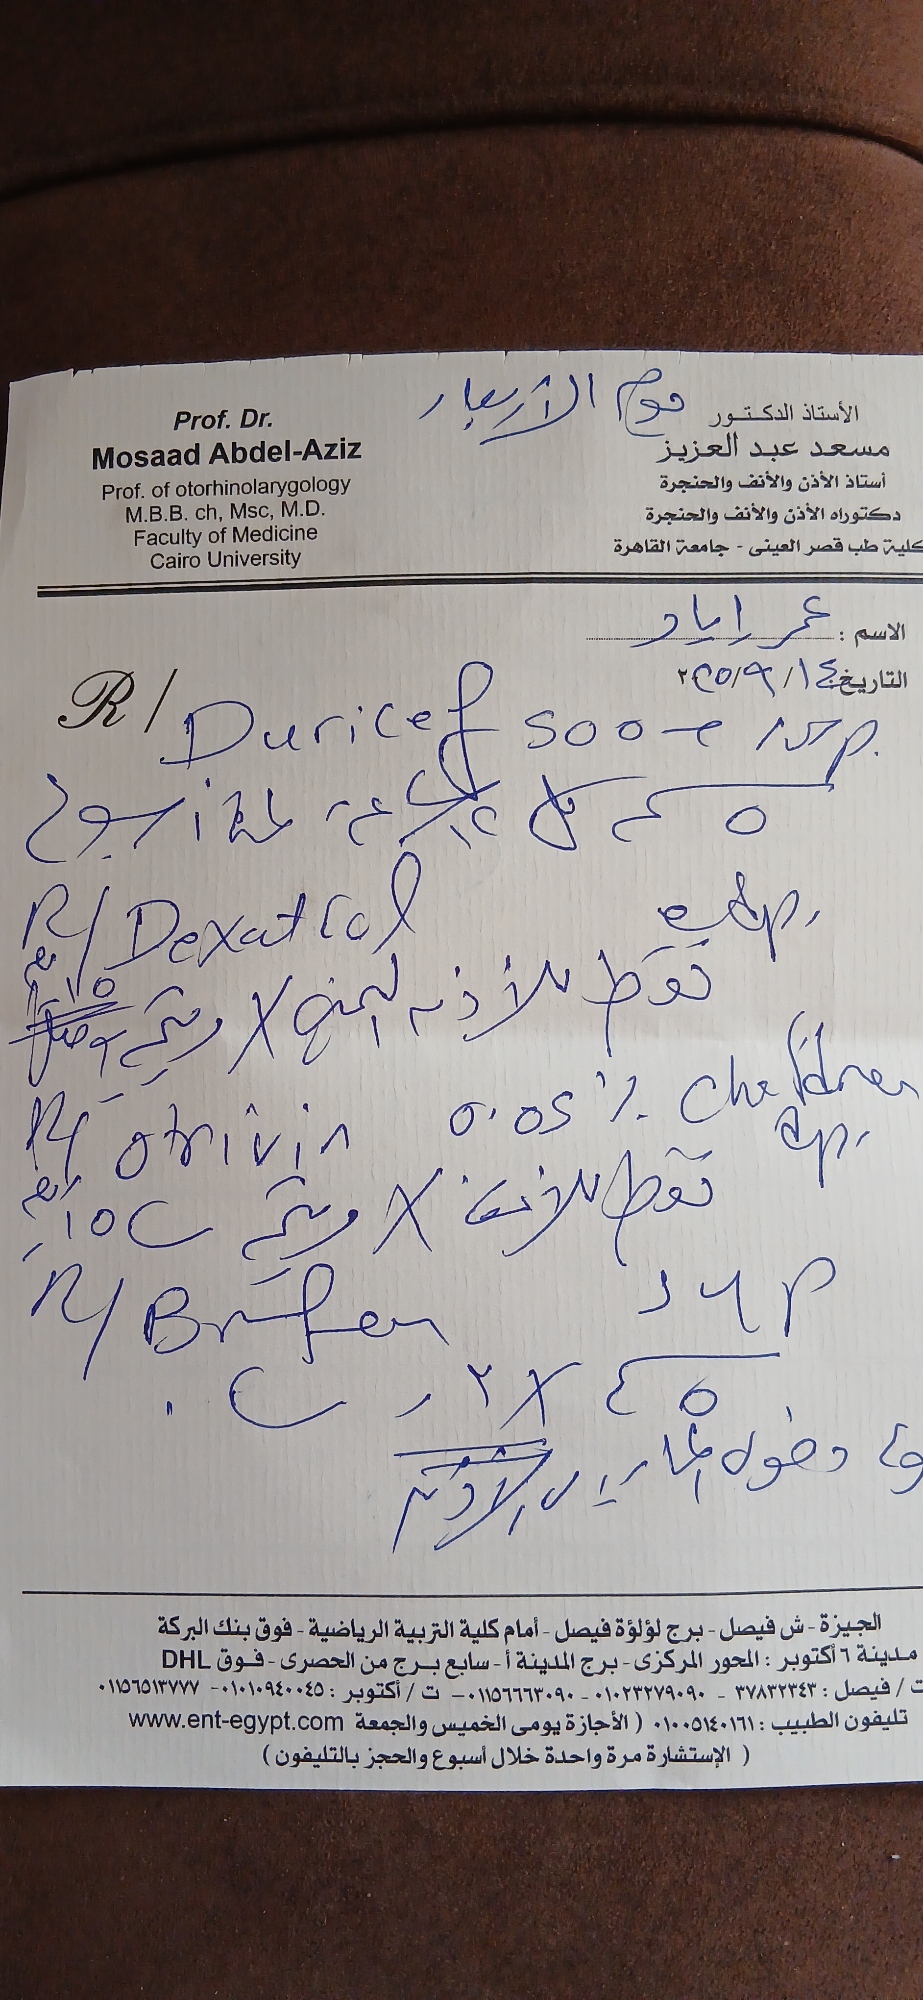 يوم الأربعاء
الأستاذ الدكتور
مسعد عبد العزيز
أستاذ الأذن والأنف والحنجرة
دكتوراه الأذن والأنف والحنجرة
كلية طب قصر العينى - جامعة القاهرة
Prof. Dr.
Mosaad Abdel-Aziz
Prof. of otorhinolarygology
M.B.B. ch, Msc, M.D.
Faculty of Medicine
Cairo University
الاسم : عمر إياد
التاريخ ١٤/٩/٢٠٢٥
R/ Duricef 500
٥ سم كل ١٢ ساعة لمدة أسبوع
R/ Dexatrol
نقط للأذن اليمنى X ٣ يوميا
R/ Otrivin 0.05 % Children
نقط للأنف X ٣
R/ Brufen syp
٥ سم X ٣
دخول الماء
الجيزة - ش فيصل - برج لؤلؤة فيصل - أمام كلية التربية الرياضية - فوق بنك البركة
مدينة ٦ أكتوبر : المحور المركزى - برج المدينة أ - سابع برج من الحصرى - فوق DHL
ت / فيصل : ٣٧٨٣٢٣٤٣ - ٠١٠٢٣٢٧٩٠٩٠ - ٠١١٥٦٦٦٣٠٩٠ - ت / أكتوبر : ٠١٠١٠٩٤٠٠٤٥ - ٠١١٥٦٥١٣٧٧٧
تليفون الطبيب : ٠١٠٠٥١٤٠١٦١ ( الأجازة يومى الخميس والجمعة www.ent-egypt.com
( الإستشارة مرة واحدة خلال أسبوع والحجز بالتليفون )